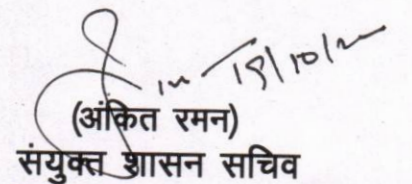 19/10/20
(अंकित रमन)
संयुक्त शासन सचिव